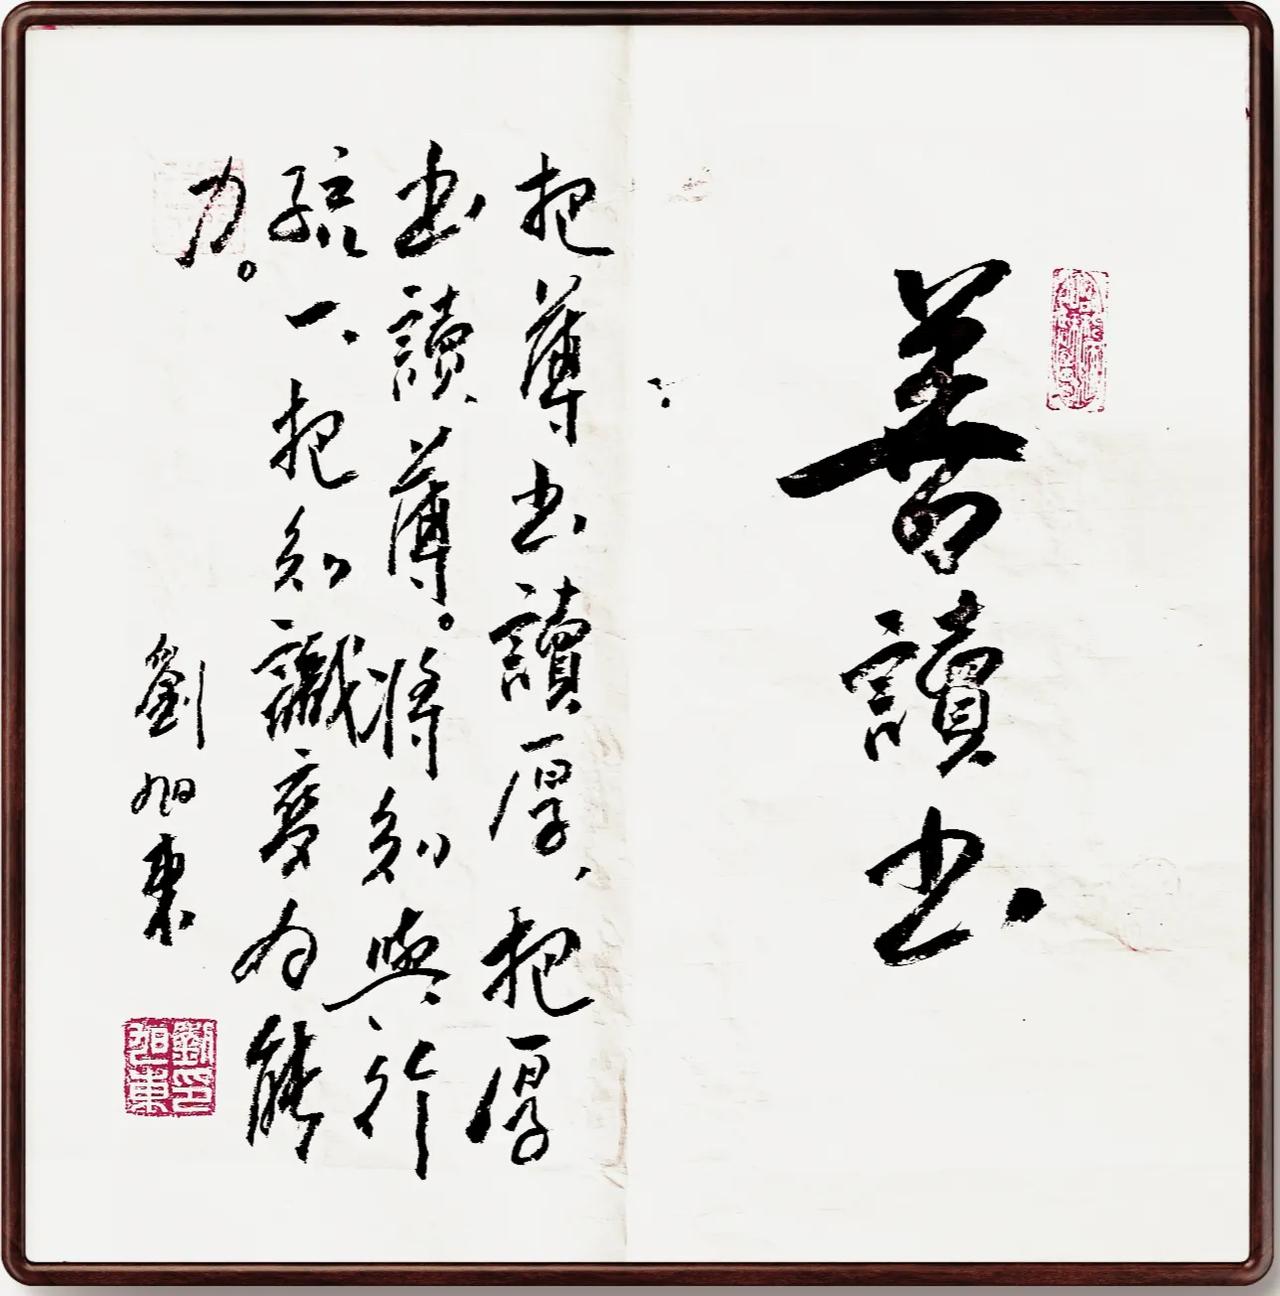 善讀书
把薄书讀厚、把厚
书讀薄。将知與行
統一、把知識變为能
力。
劉旭東
劉印
旭東